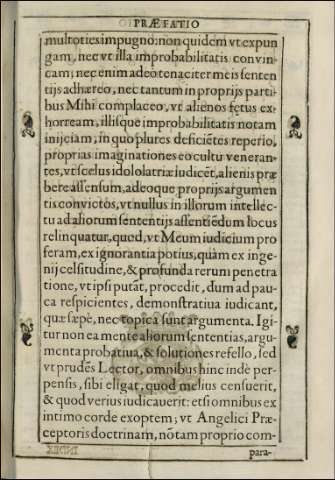 PRÆFATIO
multoties impugno: non quidem vt expun
gam, nec vt illa improbabilitatis convin-
cam; nec enim adeo tenaciter meis senten
tijs adhæreo, nec tantum in proprijs parti
bus Mihi complaceo, vt alienos fętus ex-
horream, illisque improbabilitatis notam
inijciam, in quo plures deficiẽtes reperio,
proprias imaginationes eo cultu veneran-
tes, vt scelus idololatriæ iudicẽt, alienis præ
bere assensum, adeoque proprijs argumen
tis convictos, vt nullus in illorum intellec-
tu ad aliorum sententijs assentiẽdum locus
relinquatur, quod, vt Meum iudicium pro
feram, ex ignorantia potius, quàm ex inge-
nij celsitudine, & profunda rerum penetra
tione, vt ipsi putãt, procedit, dum ad pau-
ca respicientes, demonstratiua iudicant,
quæ sæpè, nec topica sunt argumenta. Igi
tur non ea mente aliorum sententias, argu-
menta probatiua, & solutiones refello, sed
vt prudẽs Lector, omnibus hinc indè per-
pensis, sibi eligat, quod melius censuerit,
& quod verius iudicauerit: etsi omnibus ex
intimo corde exoptem; vt Angelici Præ-
ceptoris doctrinam, nõ tam proprio com-
para-